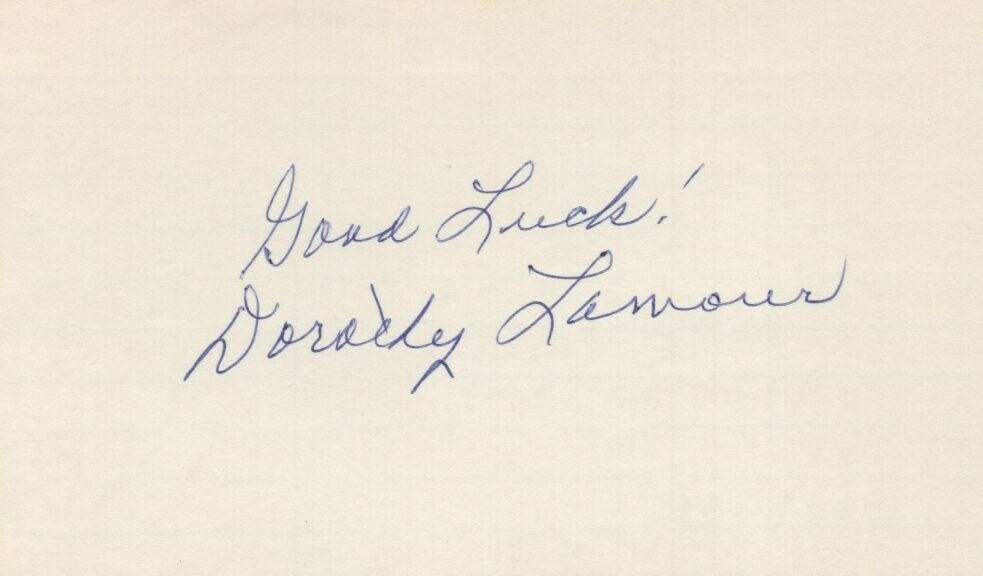 Good Luck!
Dorothy Lamour